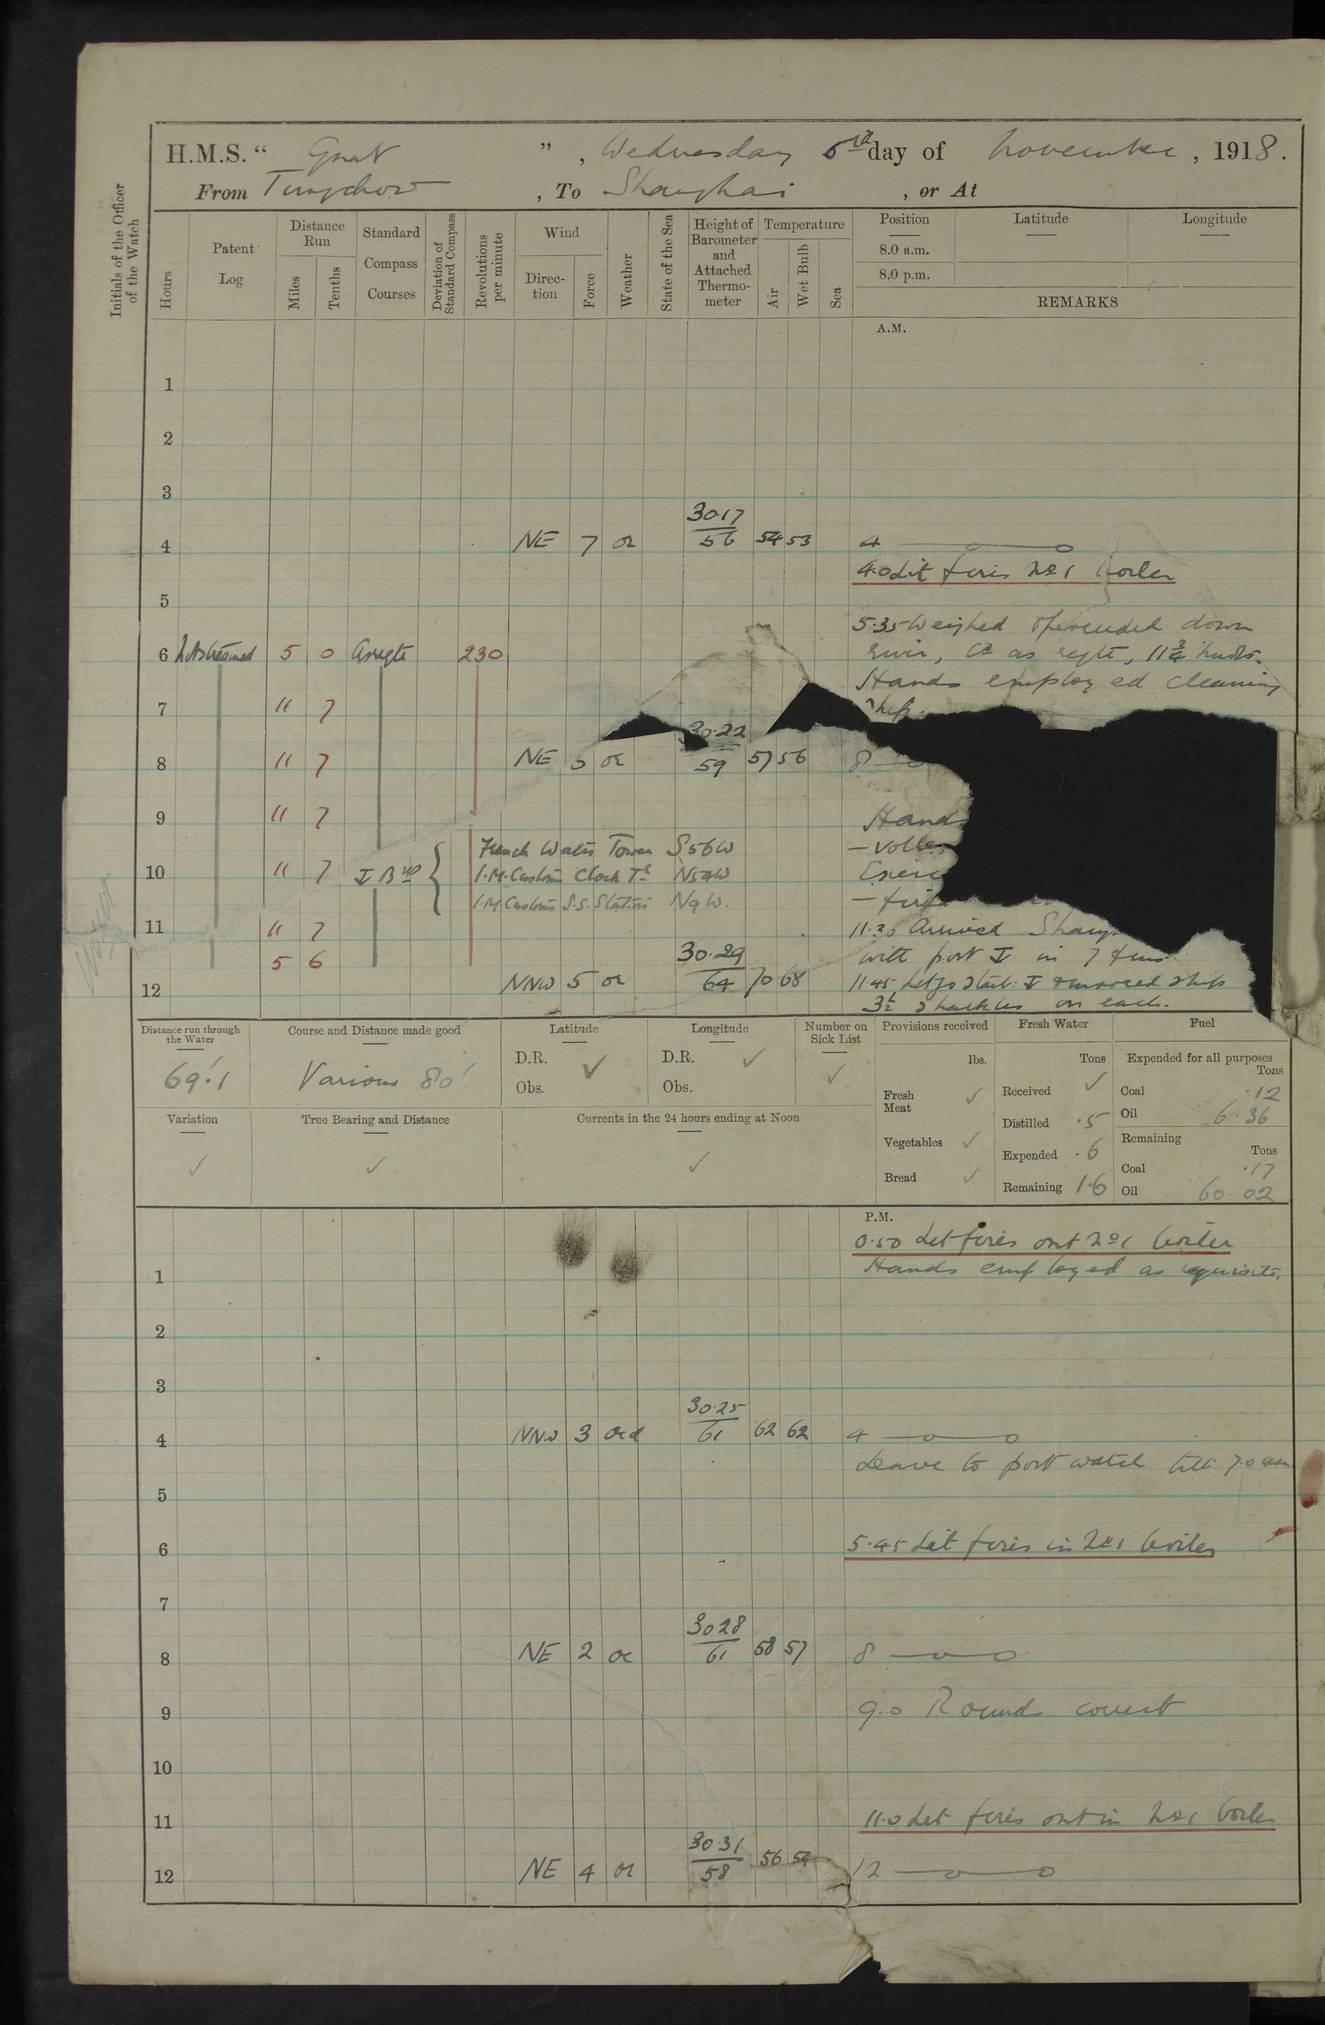 H.M.S. " Gnat ", Wednesday day of November, 1918.
From Tungchow, To Shanghai, or At
Initials of the Officer of the Watch
Hours
Patent Log
Distance Run
Miles
Tenths
Standard Compass Courses
Deviation of Standard Compass
Revolutions per minute
Wind
Direction
Force
Weather
State of the Sea
Height of Barometer and Attached Thermometer
Temperature
Air
Wet Bulb
Sea
Position
8.0 a.m.
8.0 p.m.
Latitude
Longitude
REMARKS
A.M.
1
2
3
30.17
4 NE 7 oc 56 54 53 4
4.0 Lit fires No 1 boiler
5
5.35 Weighed & proceeded down
6 Not streamed 5 0 As reqte 230 river, Co as reqte, 11¾ knots.
Hands employed cleaning
7 11 7 ship.
30.22
8 11 7 NE 5 oc 59 57 56 8
9 11 7 Hands
French Water Tower S56W
10 11 7 I.M. Customs Clock Tr
I.M. Customs S.S. Station N9W.
11 11 7 11.30 Arrived
5 6 30.29 with port in 7 fms
12 NNW 5 oc 64 70 68 11.45 Let go starb. & moored ship
3½ shackles on each.
Distance run through the Water
69.1
Course and Distance made good
Various 80'
Latitude
D.R. ✓
Obs.
Longitude
D.R. ✓
Obs.
Number on Sick List
✓
Provisions received
lbs.
Fresh Meat ✓
Vegetables ✓
Bread ✓
Fresh Water
Tons
Received ✓
Distilled .5
Expended .6
Remaining 1.6
Fuel
Expended for all purposes
Tons
Coal .12
Oil 6.36
Remaining
Tons
Coal .17
Oil 60.02
Variation
✓
True Bearing and Distance
✓
Currents in the 24 hours ending at Noon
✓
P.M.
0.50 Let fires out No 1 boiler
1 Hands employed as requisite.
2
3
30.25
4 NNW 3 ocd 61 62 62 4
Leave to port watch till 7.0 am
5
6 5.45 Lit fires in No 1 boiler
7
30.28
8 NE 2 oc 61 58 57 8
9 9.0 Rounds correct
10
11 11.0 Let fires out in No 1 boiler
30.31
12 NE 4 oc 58 56 54 12